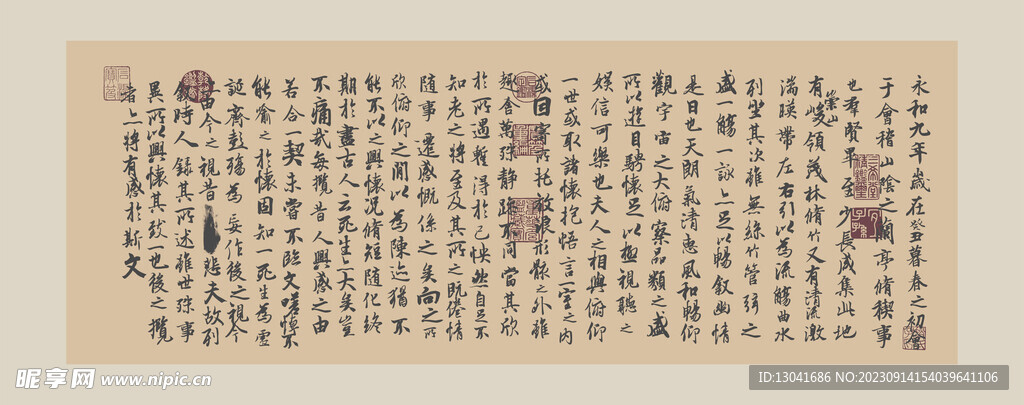 永和九年歲在癸丑暮春之初會
于會稽山陰之蘭亭脩稧事
也羣賢畢至少長咸集此地
有崇山峻領茂林脩竹又有清流激
湍暎帶左右引以為流觴曲水
列坐其次雖無絲竹管弦之
盛一觴一詠亦足以暢敘幽情
是日也天朗氣清惠風和暢仰
觀宇宙之大俯察品類之盛
所以遊目騁懷足以極視聽之
娛信可樂也夫人之相與俯仰
一世或取諸懷抱悟言一室之內
或因寄所託放浪形骸之外雖
趣舍萬殊靜躁不同當其欣
於所遇暫得於己怏然自足不
知老之將至及其所之既惓情
隨事遷感慨係之矣向之所
欣俛仰之閒以為陳迹猶不
能不以之興懷況脩短隨化終
期於盡古人云死生亦大矣豈
不痛哉每攬昔人興感之由
若合一契未嘗不臨文嗟悼不
能喻之於懷固知一死生為虛
誕齊彭殤為妄作後之視今
亦由今之視昔悲夫故列
敘時人錄其所述雖世殊事
異所以興懷其致一也後之攬
者亦將有感於斯文
昵享网 www.nipic.cn
ID:13041686 NO:20230914154039641106